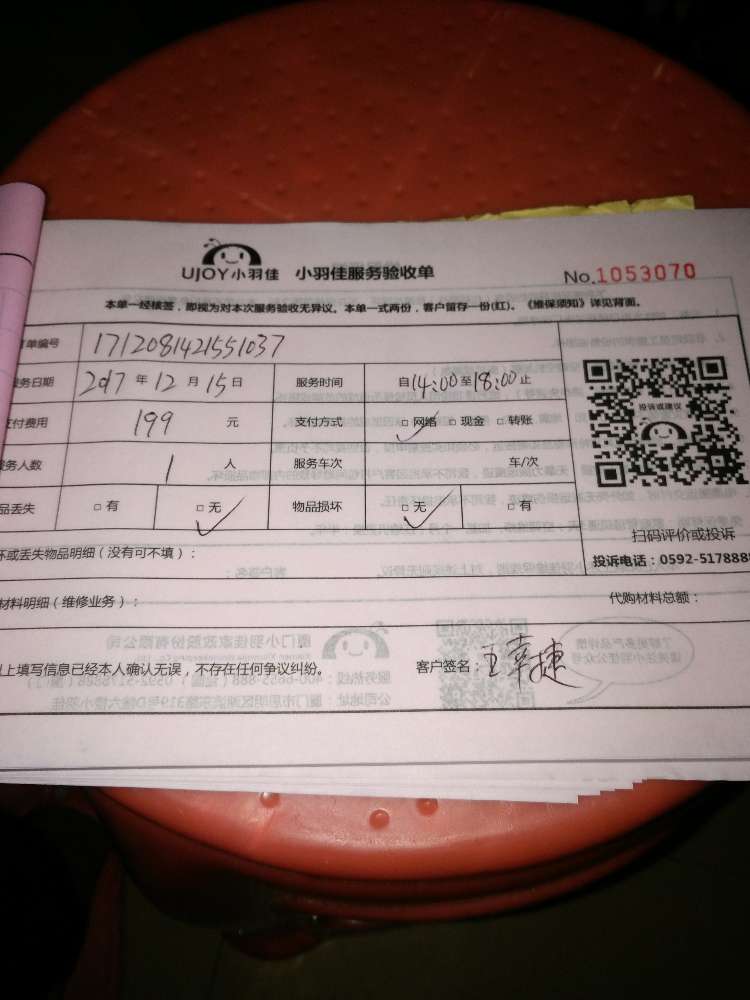 UJOY小羽佳 小羽佳服务验收单 No.1053070
本单一经核签，即视为对本次服务验收无异议。本单一式两份，客户留存一份(红)。《维保须知》详见背面。
单编号 1712081421551037
务日期 2017 年 12 月 15 日 服务时间 自14:00至18:00止
支付费用 199 元 支付方式 □ 网络 □ 现金 □ 转账
务人数 1 人 服务车次 车/次
品丢失 □ 有 □ 无 物品损坏 □ 无 □ 有
投诉或建议
扫码评价或投诉
投诉电话：0592-517888
坏或丢失物品明细（没有可不填）：
材料明细（维修业务）： 代购材料总额：
上填写信息已经本人确认无误，不存在任何争议纠纷。 客户签名：王幸捷